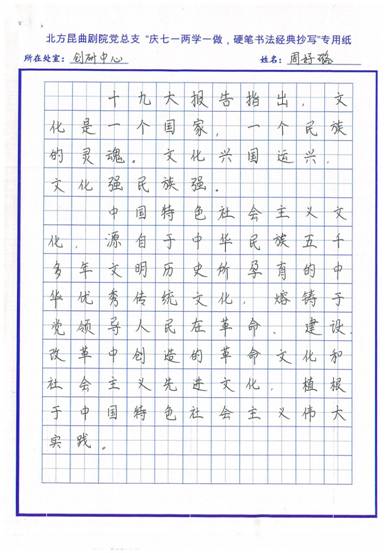 北方昆曲剧院党总支“庆七一两学一做，硬笔书法经典抄写”专用纸
所在处室：创研中心 姓名：周好璐
十九大报告指出，文
化是一个国家，一个民族
的灵魂。文化兴国运兴，
文化强民族强。
中国特色社会主义文
化，源自于中华民族五千
多年文明历史所孕育的中
华优秀传统文化，熔铸于
党领导人民在革命、建设、
改革中创造的革命文化和
社会主义先进文化，植根
于中国特色社会主义伟大
实践。